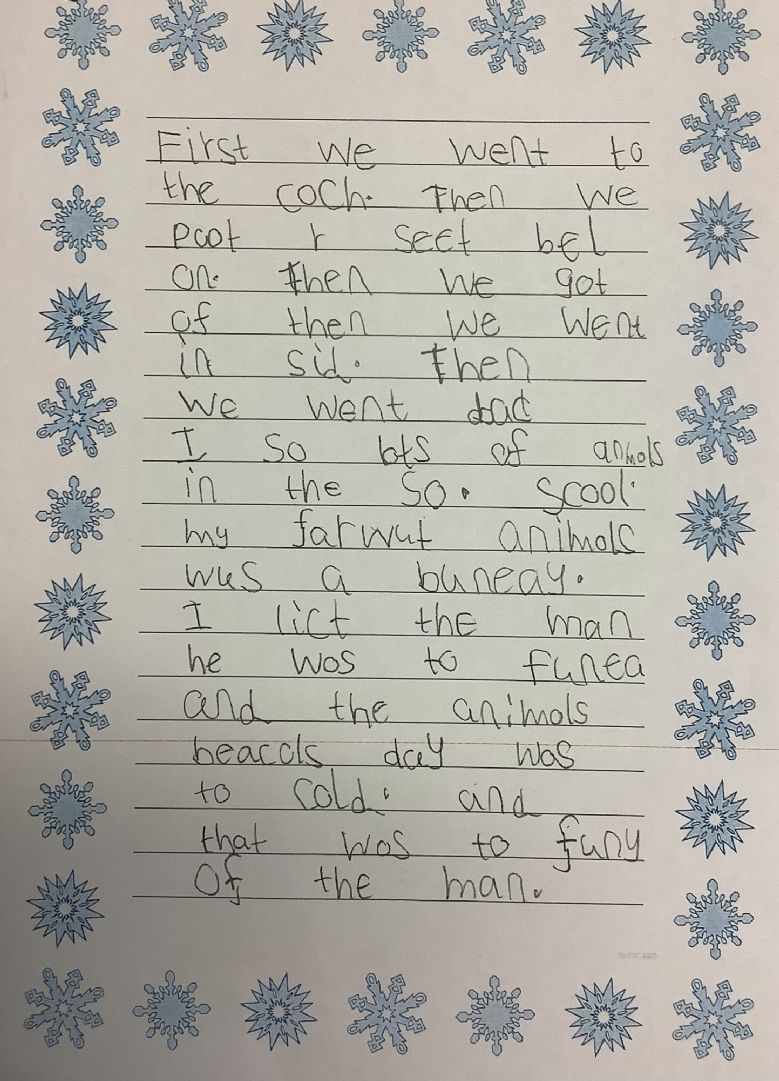 First we went to
the coch. Then we
poot r seet bel
on. then we got
of then we went
in sid. then
we went dac
I so lots of animols
in the so. scool.
my farwut animols
wus a buneay.
I lict the man
he wos to funea
and the animols
beacols day was
to cold. and
that wos to funy
Of the man.